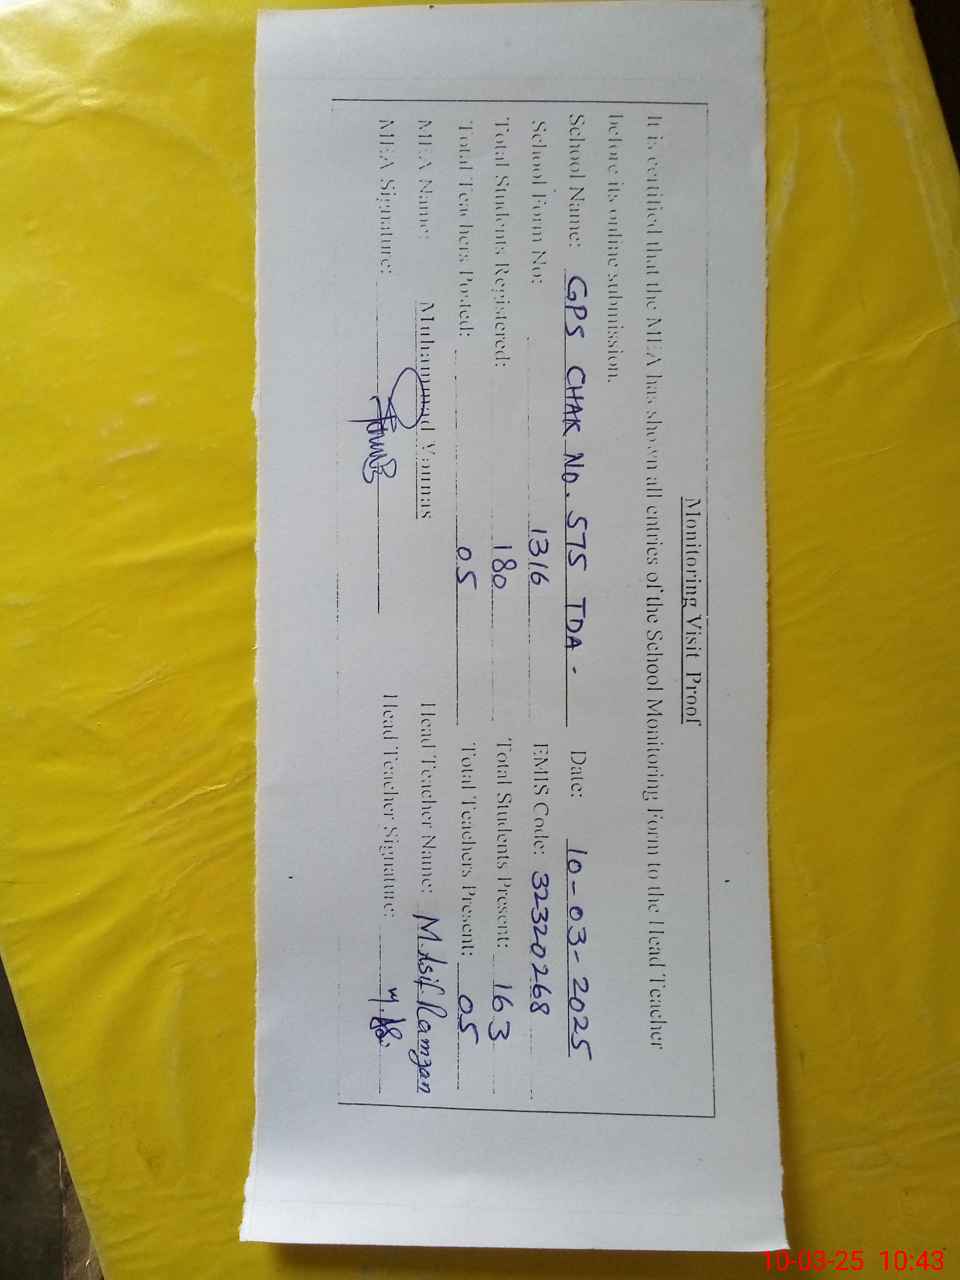 Monitoring Visit Proof
It is certified that the MEA has shown all entries of the School Monitoring Form to the Head Teacher
before its online submission.
School Name: GPS CHAK NO. 575 TDA. Date: 10-03-2025
School Form No: 1316 EMIS Code: 32320268
Total Students Registered: 180 Total Students Present: 163
Total Teachers Posted: 05 Total Teachers Present: 05
MEA Name: Muhammad Younas Head Teacher Name: M.Asif Ramzan
MEA Signature: Head Teacher Signature:
10-03-25 10:43